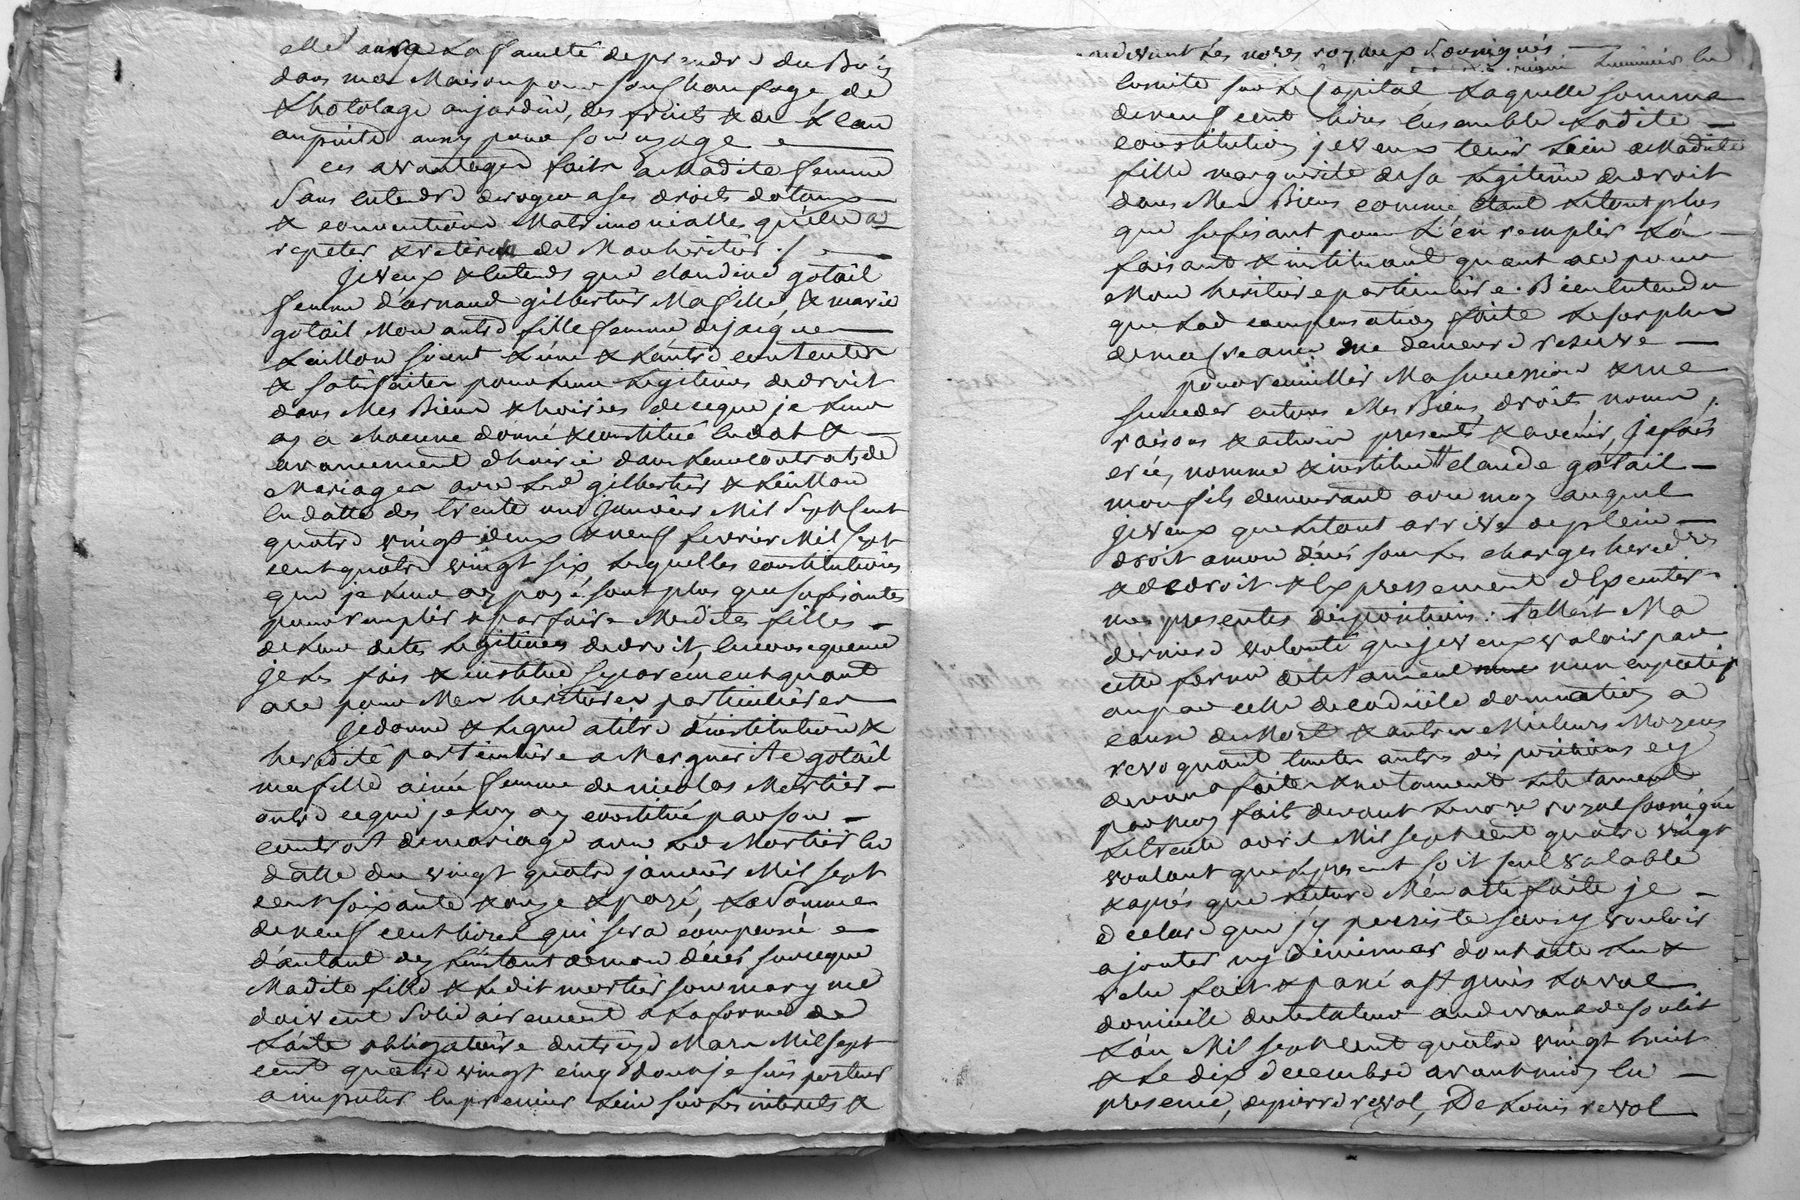 elle aura La faculté de prendre du Bois
dans ma Maison pour son chauffage, de
L'hotolage au jardin, des fruits & de L'eau
au puits aussy pour son usage
ces avantages faits a Madite femme
Sans Entendre deroger a ses droits dotaux
& conventions Matrimonialles qu'elle a
repeter & retirer de Mon heritier ./.
Je veux & Entends que claudine gotail
femme d'arnaud gilbertier Ma fille, & marie
gotail Mon autre fille femme de jacques
Leullon soient L'une & L'autre contentes
& satisfaites pour Leur Legitimes de droit
dans Mes Biens & hoiries de ce que je Leur
ay a chacune donné & constitué En dot &
avancement d'hoirie dans Leur contrats de
Mariages avec Led gilbertier & Leullon
En datte des trente un Janvier Mil sept cent
quatre vingt deux & neuf fevrier Mil sept
cent quatre vingt six, Lesquelles constitutions
que je Leur ay payé sont plus que sufisantes
pour remplir & parfaire Mesdites filles
de Leur dites Legitimes de droit, En consequence
je Les fais & institue separement quant
a ce pour Mes heritieres particulieres
Je donne & Legue a titre d'institution &
heredité particuliere a Marguerite gotail
ma fille ainée femme de nicolas Mortier
outre ce que je Luy ay constitué par son
contrat de mariage avec Led Mortier En
datte du vingt quatre janvier Mil sept
cent soixante & onze & payé, La somme
de neuf cent Livres qui sera compensée
d'autant dez L'instant de mon décés sur ce que
Madite fille & Ledit mortier son mary me
doivent Solidairement a La forme de
L'acte obligatoire du treize Mars Mil sept
cent quatre vingt cinq dont je suis porteur
a imputer En premier Lieu sur Les interets &
devant Les notres royaux soussignés
Ensuite sur Le Capital, Laquelle somme
de neuf cent livres Ensemble Ladite
constitution je veux tenir Lieu a Madite
fille marguerite de sa Legitime de droit
dans Mes Biens comme Etant Le tout plus
que sufisant pour L'en remplir La
faisant & instituant quant a ce pour
Mon heritiere particuliere. Bien Entendu
que Lad compensation faite Le surplus
de ma creance me demeure reservé
pour recueillir Ma succession & me
succeder en tous Mes Biens, droits, noms,
raisons & actions presents & avenir, je fais
créé, nomme & institue claude gotail
mon fils demeurant avec moy auquel
je veux que Le tout arrive de plein
droit a mon décés sous Les charges hered.res
& de droit & Expressement d'Executer
mes presentes dispositions: telle est Ma
derniere volonté que je veux valoir par
cette forme de testament nuncupatif
ou par celle de codicile donnation a
cause de Mort & autres Meilleurs Moyens
revoquant toutes autres dispositions cy
devant faites & notament Le testament
par moy fait devant Le no.re royal soussigné
Le trente avril Mil sept cent quatre vingt
voulant que Le present soit seul valable
& aprés que Lecture M'en a été faite je
declare que j'y persiste sans y vouloir
ajouter ny diminuer dont acte Lu &
relu fait & passé a S.t genis Laval
domicile du testateur
L'an Mil sept cent quatre vingt huit
& Le dix decembre avant midy En
presence, de pierre revol, De Louis revol